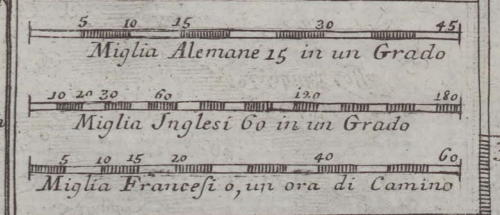 5 10 15 30 45
Miglia Alemane 15 in un Grado
10 20 30 60 120 180
Miglia Inglesi 60 in un Grado
5 10 15 20 40 60
Miglia Francesi o, un ora di Camino